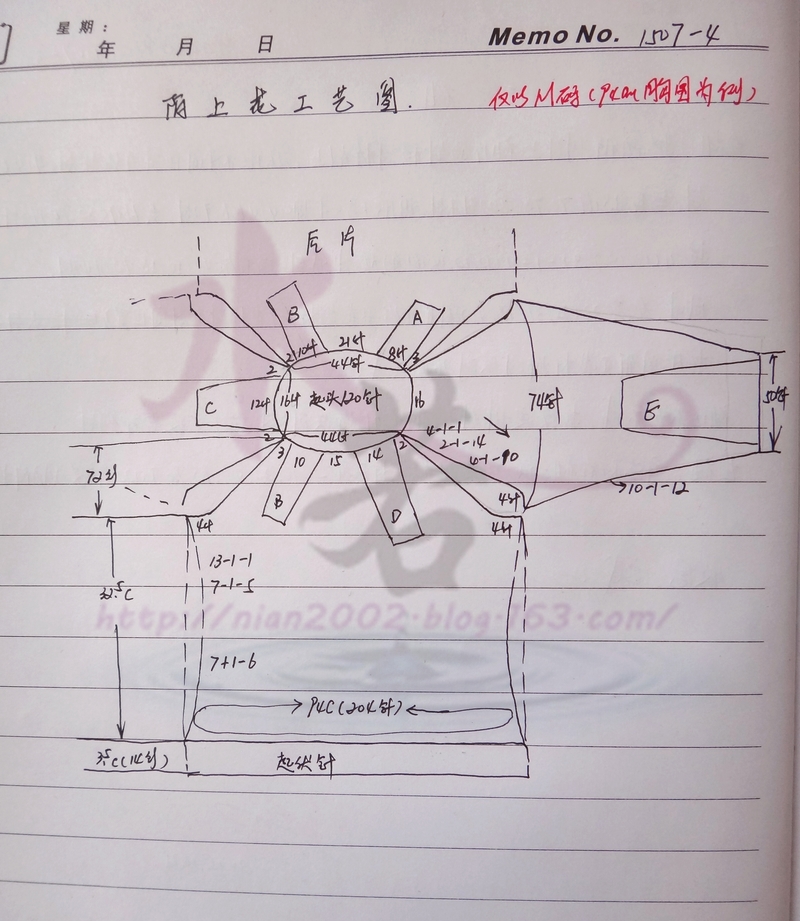 星期:
年 月 日
Memo No. 1507-4
陌上花工艺图.
仅以M码(P4cm胸围为例)
后片
B A
21针
2 10针 8针 3
44针
2
C 12针 16针 起头120针 16 74针 E 50针
2 44针 2
4-1-1
2-1-14
4-1-10
3 10 15 14
72行
B D
4针 4针
4针
10-1-12
13-1-1
7-1-5
32.5C
http://nian2002.blog.163.com/
7+1-6
P4C(204针)
3.5C(14行) 起伏针
水若